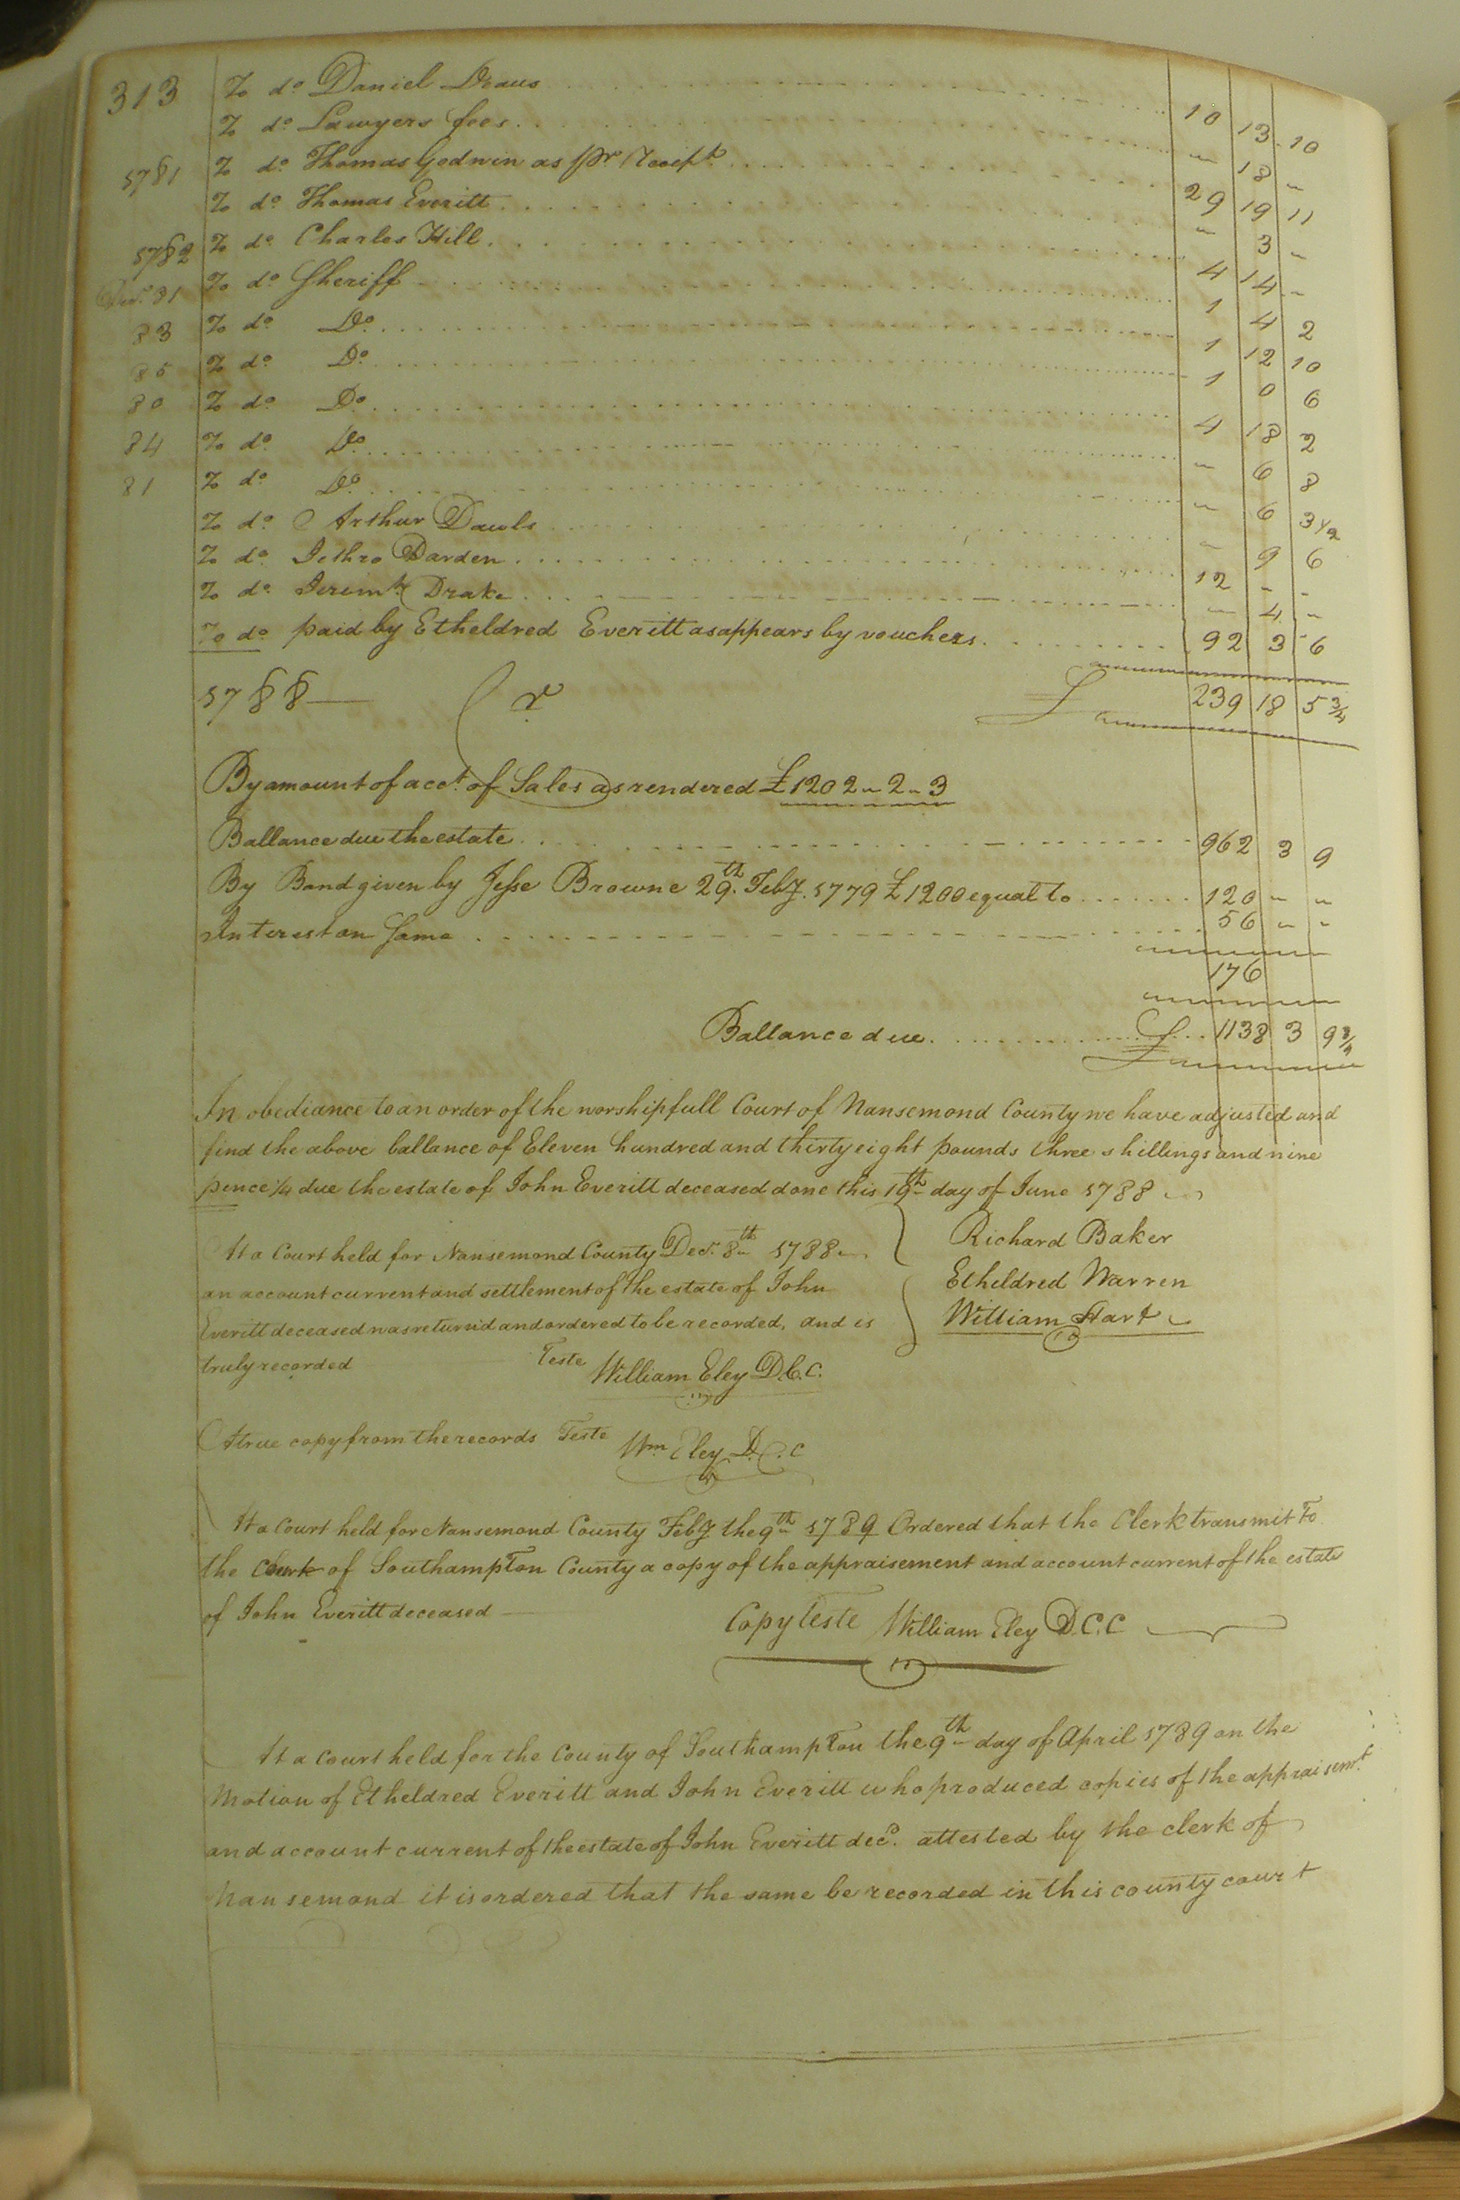 313 To do Daniel Draus 10 13 10
To do Lawyers fees - 18 -
5781 To do Thomas Godwin as pr Receipt 29 19 11
To do Thomas Everitt - 3 -
5782 To do Charles Hill 4 14 -
31 To do Sheriff 1 4 2
83 To do Do 1 12 10
85 To do Do 1 0 6
80 To do Do 4 18 2
84 To do Do - 6 8
81 To do Do - 6 3 1/2
To do Arthur Dawls - 9 6
To do Jethro Darden 12 - -
To do Jeremh Drake - 4 -
To do paid by Etheldred Everitt as appears by vouchers 92 3 6
5788 Cr £ 239 18 5 3/4
By amount of acct. of Sales as rendered £1202 - 2 - 3
Ballance due the estate 962 3 9
By Bond given by Jesse Browne 29th. Feby. 5779 £1200 equal to 120 - -
Interest on same 56 - -
176
Ballance due £ 1138 3 9 3/4
In obediance to an order of the worshipfull Court of Nansemond County we have adjusted and
find the above ballance of Eleven hundred and thirty eight pounds three shillings and nine
pence 1/4 due the estate of John Everitt deceased done this 19th day of June 5788
Richard Baker
Etheldred Warren
William Hart
At a Court held for Nansemond County Decr. 8th 5788
an account current and settlement of the estate of John
Everitt deceased was returnid and ordered to be recorded, and is
truly recorded Teste William Eley D.C.C.
A true copy from the records Teste Wm Eley D.C.C
At a Court held for Nansemond County Feby the 9th 5789 Ordered that the Clerk transmit To
the Clerk of Southampton County a copy of the appraisement and account current of the estate
of John Everitt deceased
Copy Teste William Eley D.C.C
At a court held for the County of Southampton the 9th day of April 5789 on the
Motion of Etheldred Everitt and John Everitt who produced copies of the appraisemt.
and account current of the estate of John Everitt decd. attested by the clerk of
Nansemond it is ordered that the same be recorded in this county court